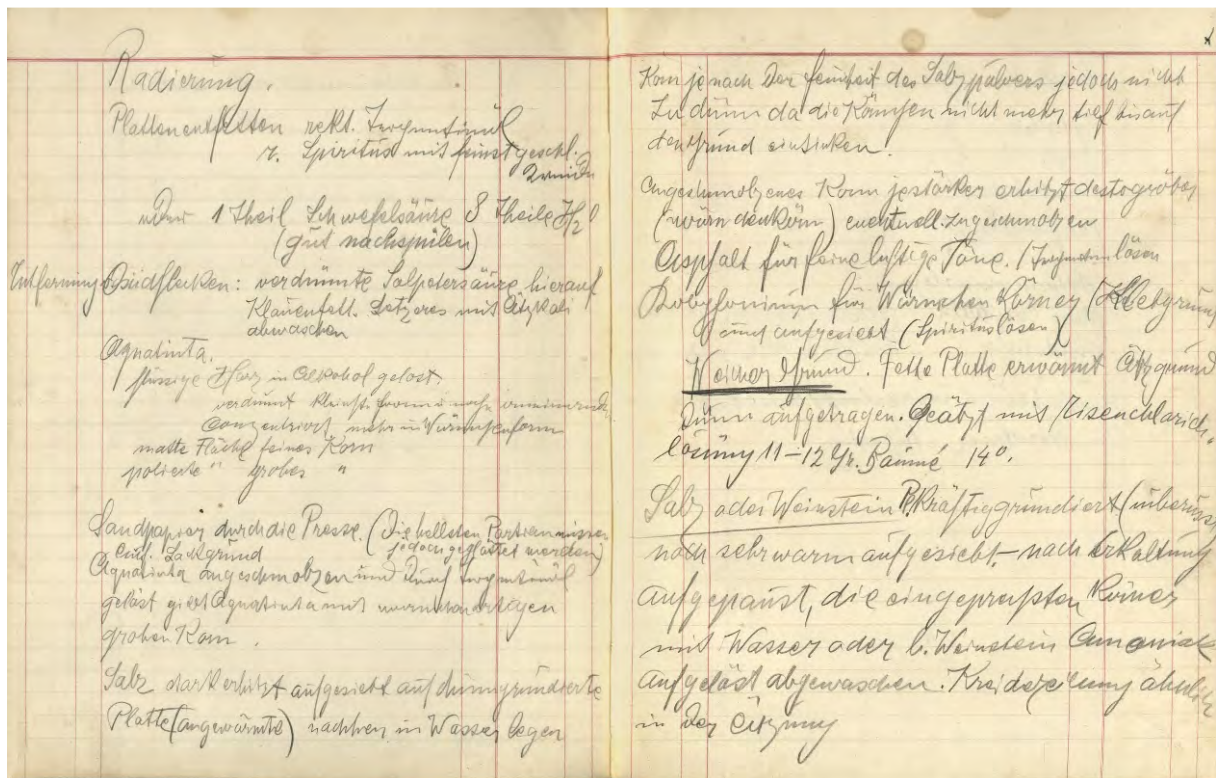 Radierung.
Plattenentfetten rekt. Terpentinöl
r. Spiritus mit feinst geschl.
Kreide
oder 1 Theil Schwefelsäure 8 Theile H2
(gut nachspülen)
Entfernung Oxidflecken: verdünnte Salpetersäure hierauf
Klauenfett. Letzeres mit Ätzkali
abwaschen
Aquatinta.
flüssige Harz in Alkohol gelöst.
verdünnt
Conzentriert, mehr in Würmchenform
matte Fläche feines Korn
polierte " grobes "
Sandpapier durch die Presse. (Die hellsten Partien müssen
jedoch werden)
Lackgrund
Aquatinta angeschmolzen und durch Terpentinöl
gelöst gibt Aquatinta mit wurmchenartigen
groben Korn.
Salz stark erhitzt aufgesiebt auf dünngrundierte
Platte (angewärmte) nachher in Wasser legen
Korn je nach der feinheit des Salzpulvers jedoch nicht
zu dünn da die nicht mehr tief bis auf
den Grund einsinken.
Angeschmolzenes Korn je stärker erhitzt desto gröber
eventuell. zugeschmolzen
Asphalt für feine luftige Töne. / Terpentin lösen
für Würmchen Körner
aufgesiebt (Spirituslösen)
Weicher Grund. Fette Platte erwärmt Ätzgrund
Dünn aufgetragen. Geätzt mit Eisenchlorid-
lösung 11-12 Gr. Baumé 14°.
Salz oder Weinstein Kräftig grundiert
noch sehr warm aufgesiebt - nach Erkaltung
aufgepaust, die eingepraßten Körner
mit Wasser oder b. Weinstein Amoniak
aufgelöst abgewaschen. Kreidezeichnung ähnlich
in der Ätzung